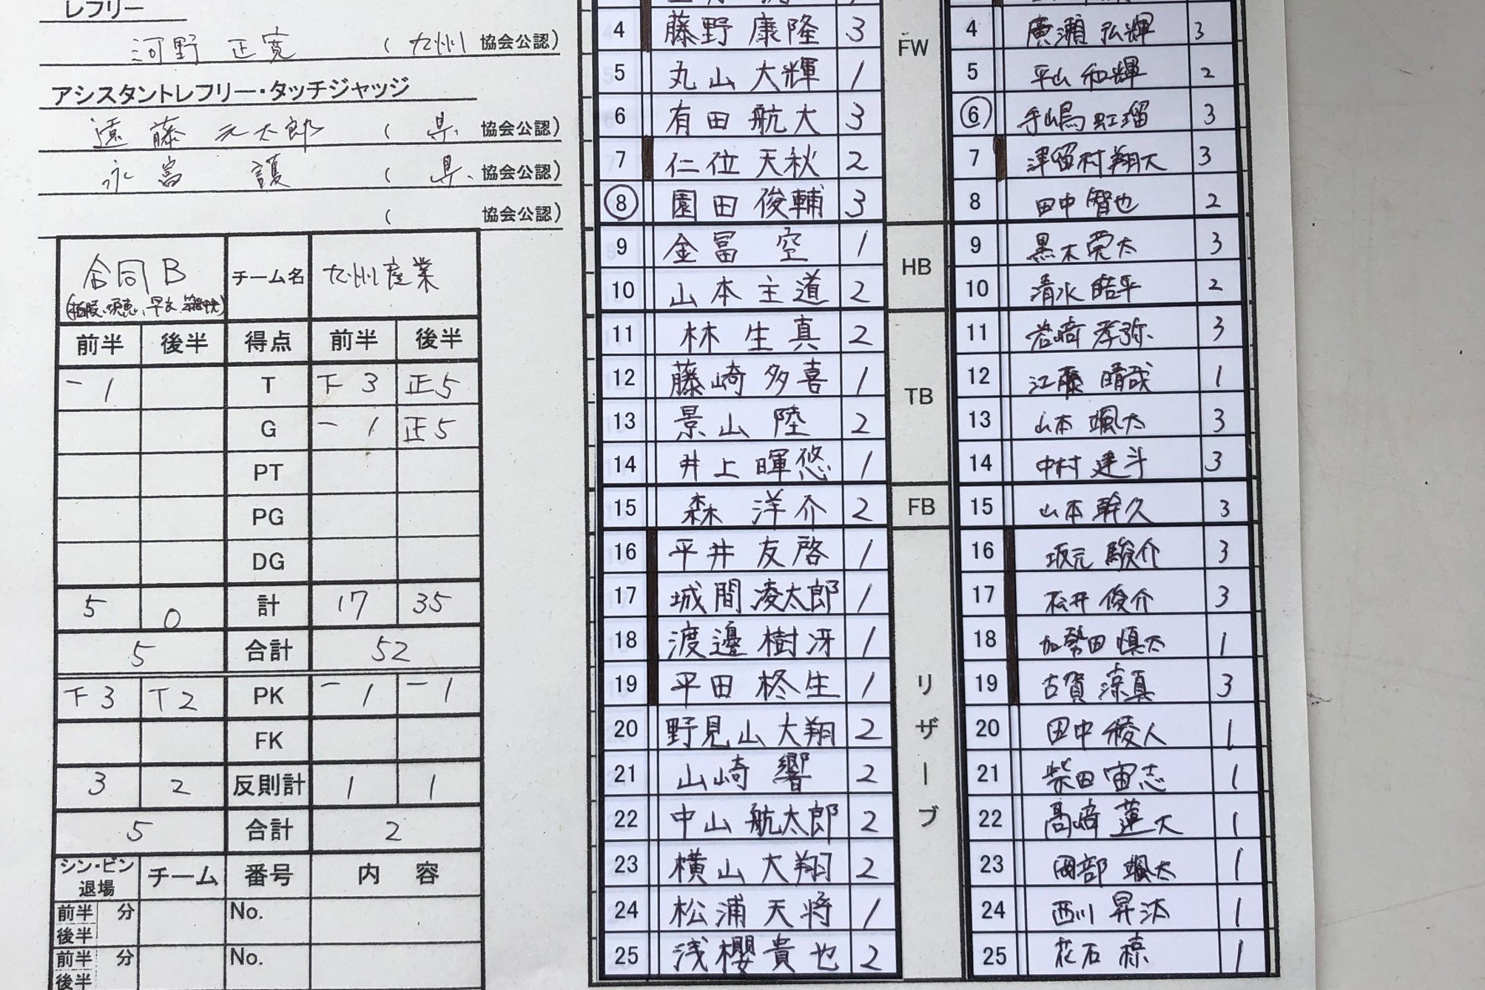 レフリー
河野 正寛 (九州 協会公認)
アシスタントレフリー・タッチジャッジ
遠藤 元太郎 (県 協会公認)
永冨 護 (県 協会公認)
( 協会公認)
合同B チーム名 九州産業
前半 後半 得点 前半 後半
一 1 T 下 3 正5
G 一 1 正5
PT
PG
DG
5 0 計 17 35
5 合計 52
下3 T2 PK 一 1 一 1
FK
3 2 反則計 1 1
5 合計 2
シン・ビン 退場 チーム 番号 内 容
前半 分 No.
後半
前半 分 No.
後半
4 藤野 康隆 3 FW 4 廣瀬 弘輝 3
5 丸山 大輝 1 5 平山 和輝 2
6 有田 航大 3 6 手嶋 虹瑠 3
7 仁位 天秋 2 7 津留村 翔大 3
8 園田 俊輔 3 8 田中 智也 2
9 金冨 空 1 HB 9 黒木 栄太 3
10 山本 主道 2 10 清水 皓平 2
11 林 生真 2 TB 11 岩崎 孝弥 3
12 藤崎 多喜 1 12 江藤 晴哉 1
13 景山 陸 2 13 山本 颯太 3
14 井上 暉悠 1 14 中村 建斗 3
15 森 洋介 2 FB 15 山本 幹久 3
16 平井 友啓 1 リザーブ 16 坂元 駿介 3
17 城間 凌太郎 1 17 松井 俊介 3
18 渡邉 樹冴 1 18 加勢田 慎太 1
19 平田 柊生 1 19 古賀 涼真 3
20 野見山 大翔 2 20 田中 稜人 1
21 山崎 響 2 21 柴田 宙志 1
22 中山 航太郎 2 22 髙崎 蓮大 1
23 横山 大翔 2 23 岡部 颯太 1
24 松浦 天将 1 24 西川 昇汰 1
25 浅櫻 貴也 2 25 花石 1